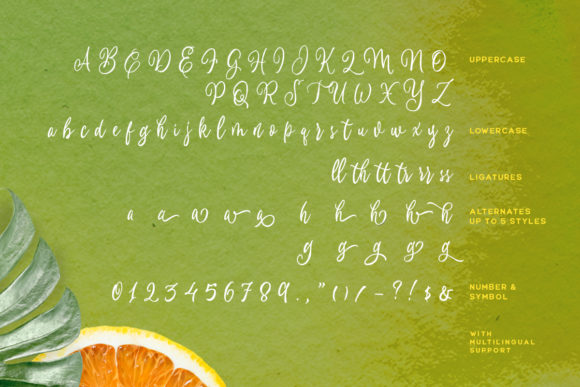 A B C D E F G H I J K L M N O UPPERCASE
P Q R S T U W X Y Z
a b c d e f g h i j k l m n o p q r s t u v w x y z LOWERCASE
ll th tt rr ss LIGATURES
a a a a a h h h h ALTERNATES
UP TO 5 STYLES
g g g g
0 1 2 3 4 5 6 7 8 9 . , " ( ) / - ? ! $ & NUMBER &
SYMBOL
WITH
MULTILINGUAL
SUPPORT